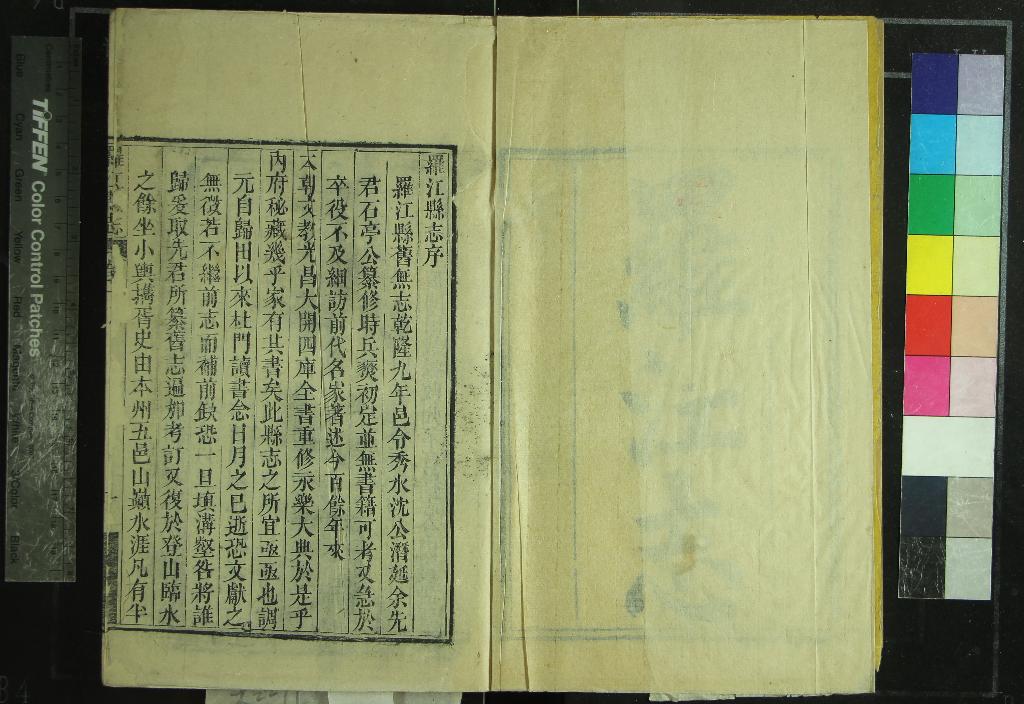 羅江縣志序
羅江縣舊無志乾隆九年邑令秀水沈公潛延余先
君石亭公纂修時兵燹初定並無書籍可考又急於
卒役不及細訪前代名家著述今百餘年來
本朝文教光昌大開四庫全書重修永樂大典於是乎
內府秘藏幾乎家有其書矣此縣志之所宜亟亟也調
元自歸田以來杜門讀書念日月之已逝恐文獻之
無徵若不繼前志而補前缺恐一旦填溝壑咎將誰
歸爰取先君所纂舊志遍加考訂又復於登山臨水
之餘坐小輿攜胥史由本州五邑山巔水涯凡有半
TIFFEN Color Control Patches
Blue
Cyan
Green
Yellow
Red
Magenta
White
3/Color
Black